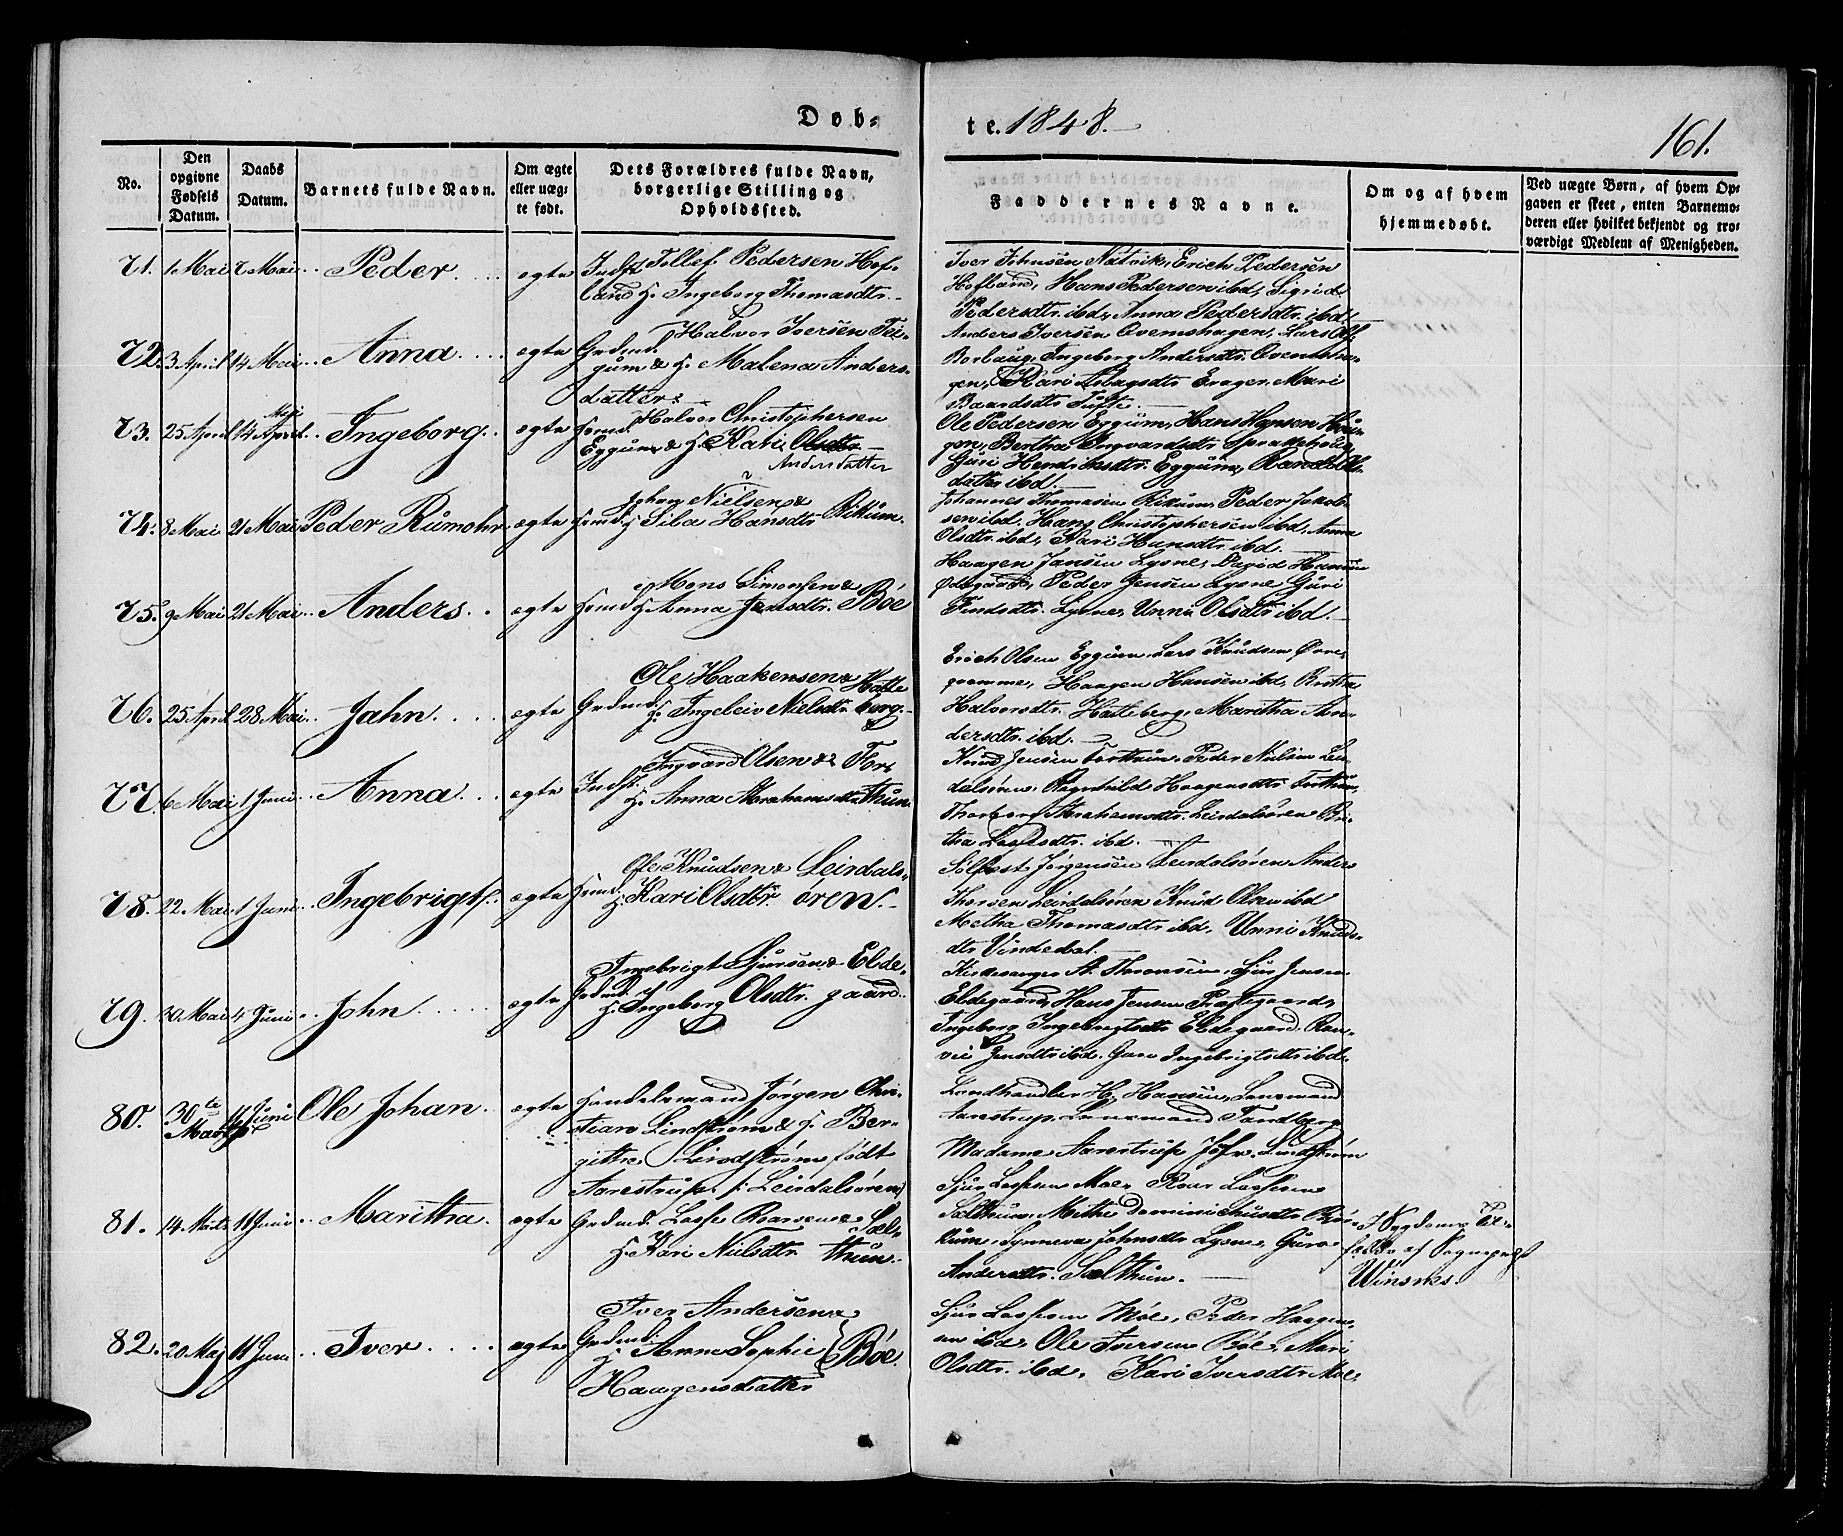 Døb-
te. 1848.
161.
No.
Den opgivne Fødsels Datum.
Daabs Datum.
Barnets fulde Navn.
Om ægte eller uæg-te født.
Dets Forældres fulde Navn, borgerlige Stilling og Opholdssted.
Faddernes Navne.
Om og af hvem hjemmedøbt.
Ved uægte Børn, af hvem Op-gaven er skeet, enten Barnemo-deren eller hvilket bekjendt og tro-værdigt Medlem af Menigheden.
71. 1 Mai 7 Mai Peder. ægte Indst. Tollef Pedersen Hof-
land & h. Ingeborg Thomasdtr.
Iver Johnsen Natvik, Erich Pedersen
Hofland, Hans Pedersen ibd, Sigrid
Pedersdtr. ibd, Anna Pedersdtr. ibd.
72. 3 April 14 Mai Anna ægte Grdmd. Halvor Iversen Tei-
gum & h. Malena Anders-
datter.
Anders Iversen Ovenshagen, Lars
Borlaug, Ingeborg Andersdtr. Ovensha-
gen, Kari Erager, Mari
Baardsdtr. Tufte.
73. 25 April 14 Mai Ingeborg. ægte Hmd. Halvor Christophersen
Eggum & h. Kari Olsdtr
Andersdatter
Ole Pedersen Eggum, Hans Hansen Hou-
gen, Bertha Ingvardsdtr
Guri Hendriksdtr. Eggum, Rand Ols-
datter ibd.
74. 8 Mai 21 Mai Peder Rumohr ægte Hmd. Johan Nielsen &
h. Sila Hansdtr Rikum.
Johannes Thomasen Rikum, Peder Jakob-
sen ibd. Hans Christophersen ibd. Anna
Olsdtr. ibd, Kari Hansdtr ibd.
75. 9 Mai 21 Mai Anders. ægte Hmd. Mons Simonsen &
h. Anna Jensdtr. Böe
Haagen Jansen Lysne, David Hansen
Ødegaard, Peder Jensen Lysne, Guri
Findsdtr. Lysne, Unni Olsdtr ibd.
76. 25 April 28 Mai Jahn. ægte Grdmd. Ole Haakensen & Hatle
h. Ingeleiv Nielsdtr. berg.
Erich Olsen Eggum, Lars Knudsen Øvre-
gramme, Haagen Hansen ibd, Britha
Halvorsdtr. Hatleberg, Maritha An-
dersdtr. ibd.
77. 6 Mai 1 Juni Anna ægte Indst. Ingvard Olsen & For
h. Anna Abrahamsdtr. thun.
Knud Jensen Forthun, Peder Nielsen Lei-
dalsören, Ragnhild Haagensdtr. Forthun,
Thorbor Abrahamsdtr. Leirdalsören, Bri-
tha Lassesdtr. ibd.
78. 22 Mai 1 Juni Ingebrigt. ægte Hmd. Ole Knudsen & Leirdals-
h. Kari Olsdtr. ören.
Sölfest Jörgensen Leirdalsören, Anders
Thorsen Leirdalsören, Knud Olsen ibd
Metha Thomasdtr. ibd. Unni Knuds-
dtr. Vindedal.
79. 30 Mai 4 Juni John ægte Grdmd. Ingebrigt Sjursen & Elde-
h. Ingeborg Olsdtr. gaard.
Kirkesanger A. Thronsen, Sjur Jensen
Eldegaard, Hans Jensen Præstegaard,
Ingeborg Ingebrigtsdtr Eldegaard. Ran-
vei Jensdtr ibd. Guri Ingebrigtsdtr ibd.
80. 30te Marts 11 Juni Ole Johan ægte Handelsmand Jörgen Chri-
stian Lindström & h. Ber-
githe Lindström født
Aarestrup. Leirdalsören
Landhandler H. Hansen, Lensmand
Aarestrup, Lensmand Sandberg
Madame Aarestrup, Jøfr. Lindström
81. 14 Marts 11 Juni Maritha. ægte Grdmd. Lasse Roarsen & Sæl-
h. Kari Nielsdtr. thun.
Sjur Lassesen Moe, Roar Lassesen
Sælthun, Mithe Dominichusdtr. Ri-
kum, Synneva Johnsdtr Lysne, Guro
Andersdtr. Sælthun.
I Sygdoms Til-
fælde af Sognepræst
Winsnes
82. 20 Maj 11 Juni Iver ægte Grdmd. Iver Andersen &
h. Anne Sophie Böe.
Haagensdatter
Sjur Lassesen Möe, Peder Haagen-
sen ibd, Ole Iversen Böe, Mari
Olsdtr. ibd, Kari Iversdtr. Moe.